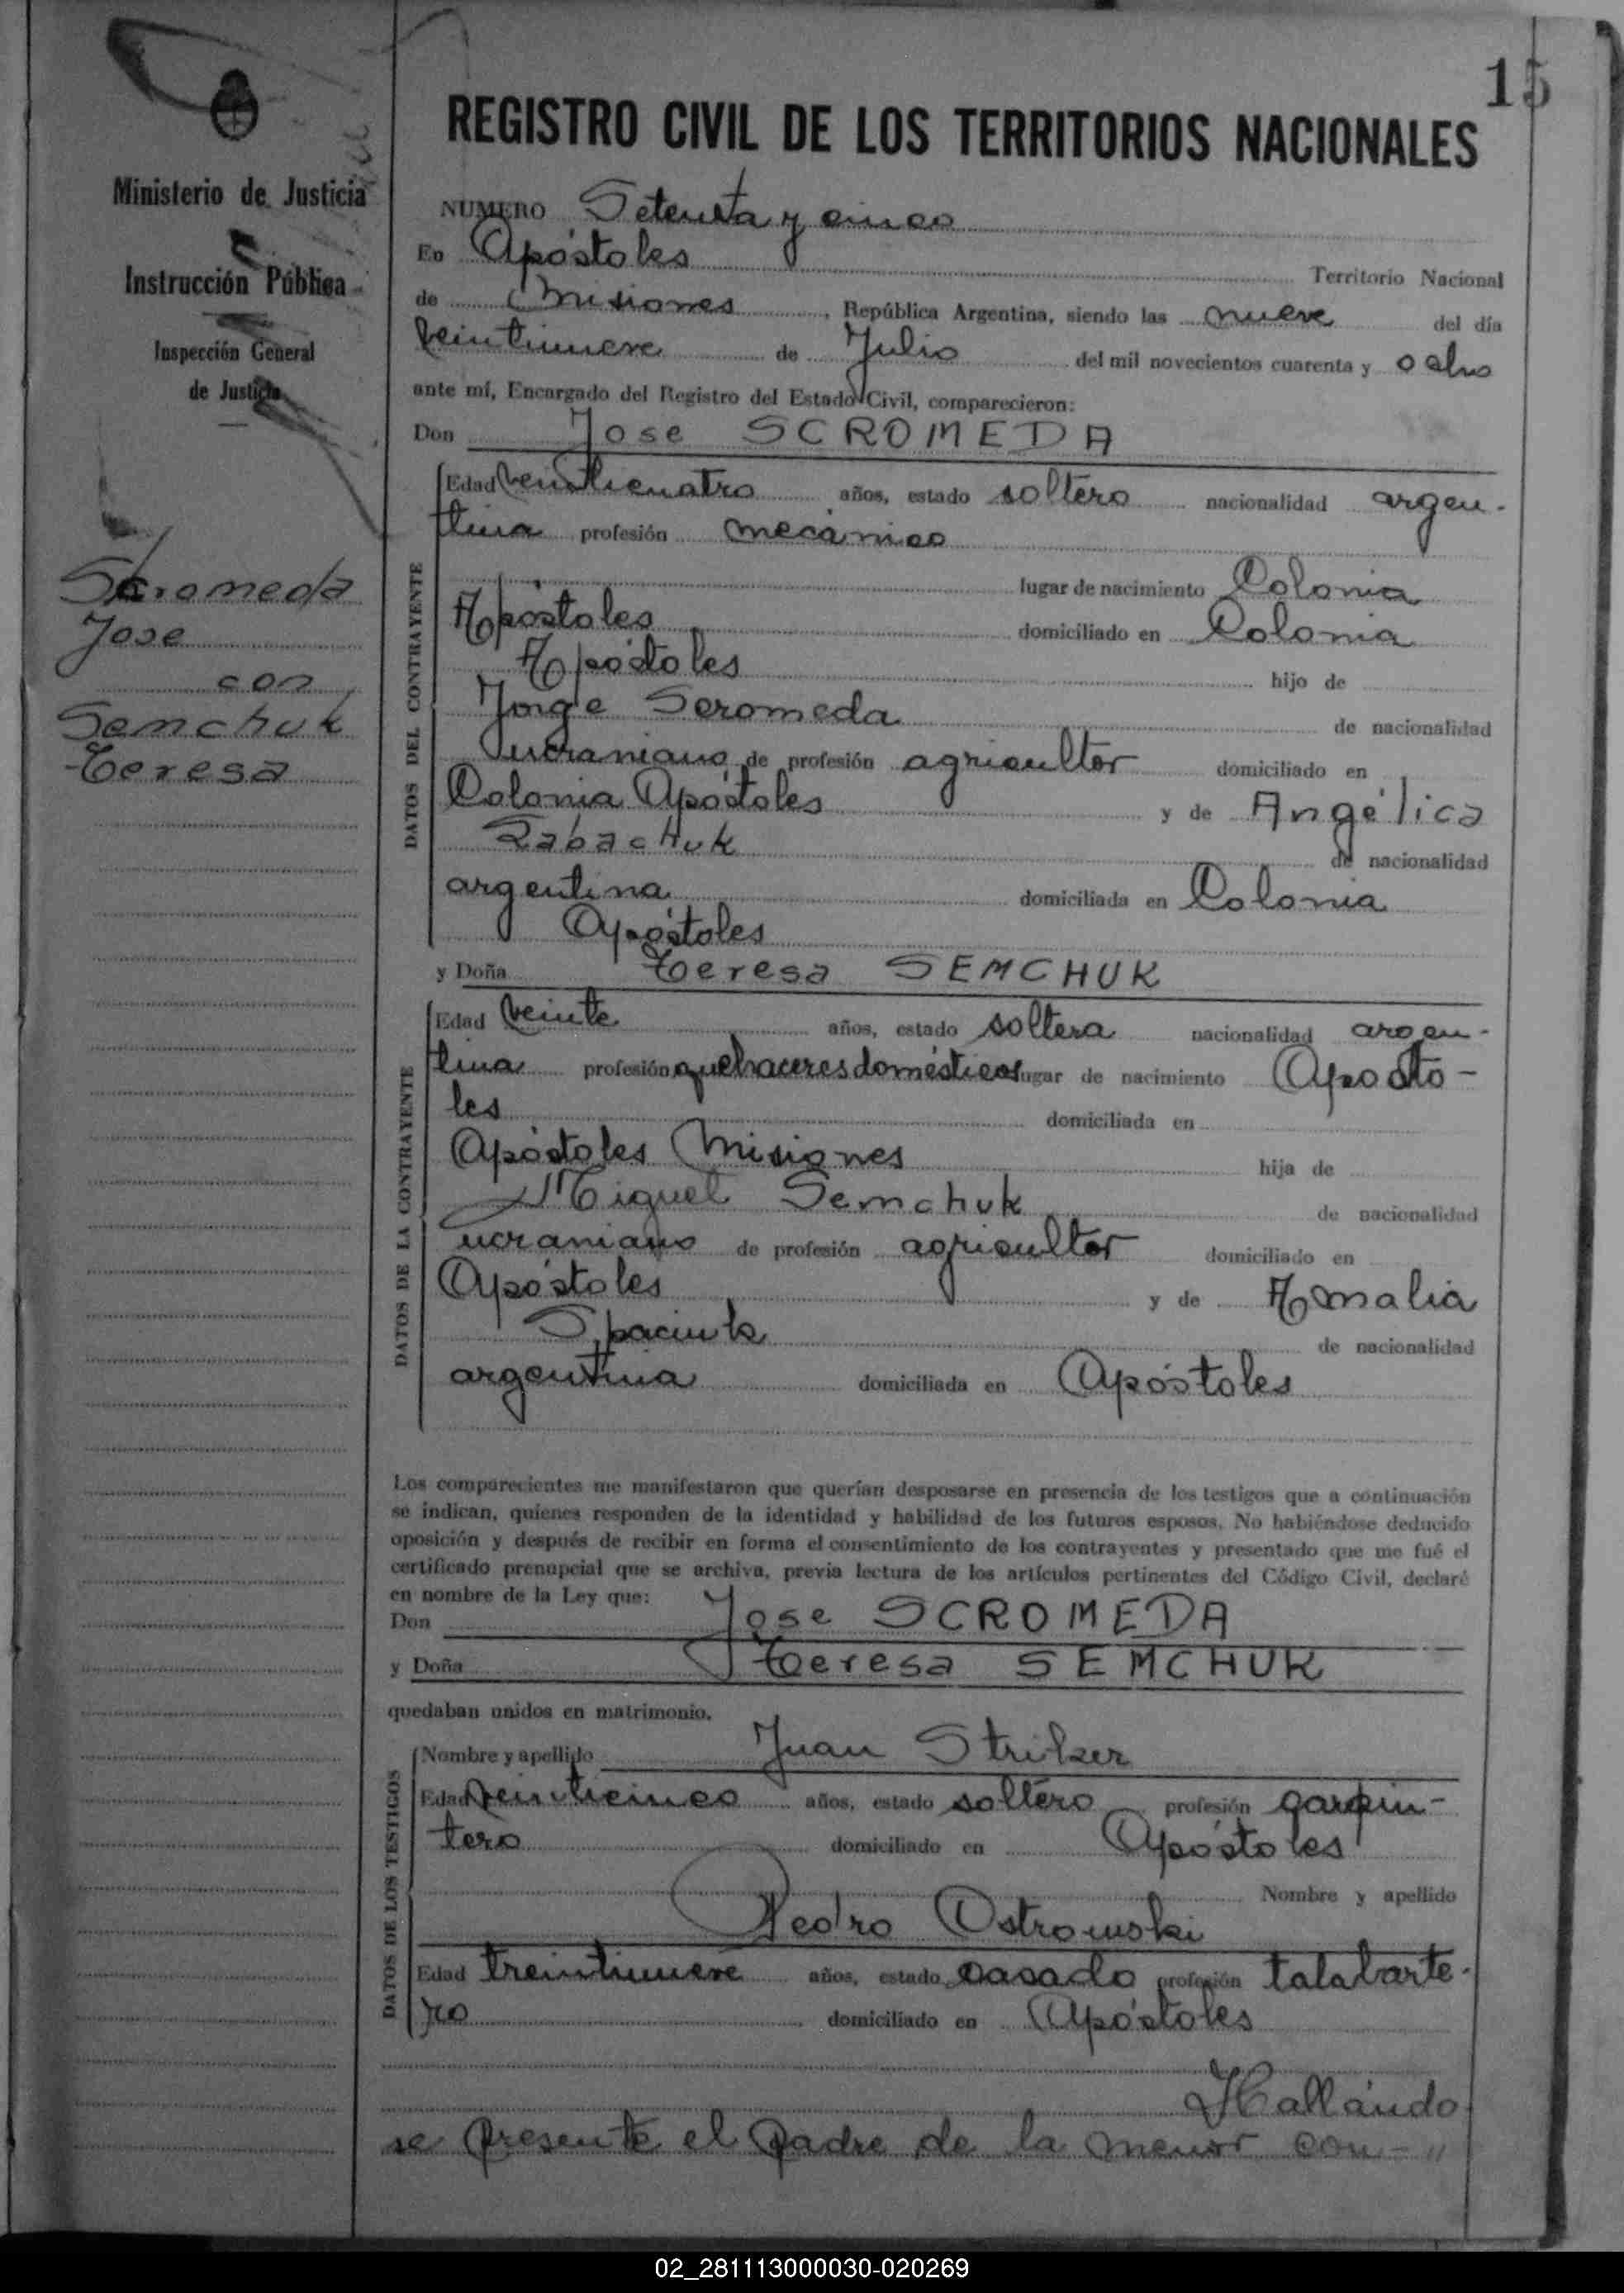 15
REGISTRO CIVIL DE LOS TERRITORIOS NACIONALES
Ministerio de Justicia
Instrucción Pública
Inspección General
de Justicia
Scromeda
Jose
con
Semchuk
Teresa
NUMERO Setenta y cinco
En Apóstoles Territorio Nacional
de Misiones, República Argentina, siendo las nueve del día
veintinueve de Julio del mil novecientos cuarenta y ocho
ante mí, Encargado del Registro del Estado Civil, comparecieron:
Don Jose SCROMEDA
DATOS DEL CONTRAYENTE
Edad veinticuatro años, estado soltero nacionalidad argen-
tina profesión mecánico
lugar de nacimiento Colonia
Apóstoles domiciliado en Colonia
Apóstoles hijo de
Jorge Scromeda de nacionalidad
ucraniano de profesión agricultor domiciliado en
Colonia Apóstoles y de Angélica
Rabachuk de nacionalidad
argentina domiciliada en Colonia
Apóstoles
y Doña Teresa SEMCHUK
DATOS DE LA CONTRAYENTE
Edad veinte años, estado soltera nacionalidad argen-
tina profesión quehaceres domésticos lugar de nacimiento Apósto-
les domiciliada en
Apóstoles Misiones hija de
Miguel Semchuk de nacionalidad
ucraniano de profesión agricultor domiciliado en
Apóstoles y de Amalia
de nacionalidad
argentina domiciliada en Apóstoles
Los comparecientes me manifestaron que querían desposarse en presencia de los testigos que a continuación
se indican, quienes responden de la identidad y habilidad de los futuros esposos. No habiéndose deducido
oposición y después de recibir en forma el consentimiento de los contrayentes y presentado que me fué el
certificado prenupcial que se archiva, previa lectura de los artículos pertinentes del Código Civil, declaré
en nombre de la Ley que:
Don Jose SCROMEDA
y Doña Teresa SEMCHUK
quedaban unidos en matrimonio.
DATOS DE LOS TESTIGOS
Nombre y apellido Juan
Edad veinticinco años, estado soltero profesión carpin-
tero domiciliado en Apóstoles
Nombre y apellido
Pedro Ostrowski
Edad treintinueve años, estado casado profesión talabarte-
ro domiciliado en Apóstoles
Hallándo
se presente el padre de la menor con-"
02_281113000030-020269